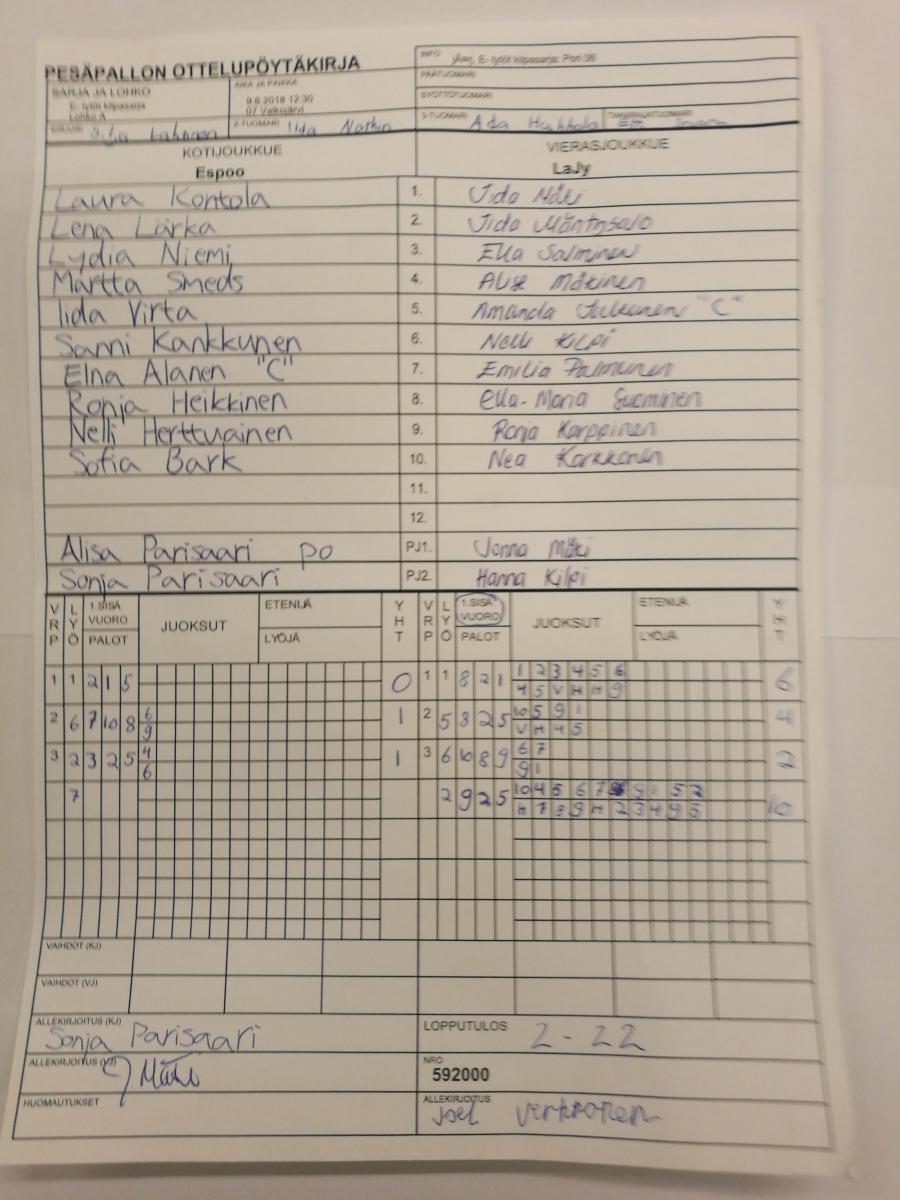 PESÄPALLON OTTELUPÖYTÄKIRJA
INFO
E- tytöt kilpasarja:
PÄÄTUOMARI
SYÖTTÖTUOMARI
SARJA JA LOHKO
E- tytöt kilpasarja
Lohko A
AIKA JA PAIKKA
9.6.2018 12:30
07 Valkojärvi
2-TUOMARI Iida
3-TUOMARI Ada
KOTIJOUKKUE
Espoo
VIERASJOUKKUE
LaJy
Laura Kontola 1. Vida Mäki
Lena Lärka 2. Vida Mäntysalo
Lydia Niemi 3. Ella Salminen
Martta Smeds 4. Mäkinen
Iida Virta 5. Amanda "C"
Sanni Kankkunen 6. Nelli Kilpi
Elna Alanen "C" 7. Emilia
Ronja Heikkinen 8. Ella-Maria Suominen
Nelli Herttuainen 9. Ronja Karppinen
Sofia Bark 10. Nea Karkkonen
11.
12.
Alisa Parisaari po PJ1. Jonna Mäki
Sonja Parisaari PJ2. Hanna Kilpi
VRP LYÖ 1.SISÄ VUORO PALOT JUOKSUT ETENIJÄ LYÖJÄ YHT VRP LYÖ 1.SISÄ VUORO PALOT JUOKSUT ETENIJÄ LYÖJÄ YHT
1 1 2 1 5 0 1 1 8 2 1 1 2 3 4 5 6 6
4 5 V H H 9
2 6 7 10 8 6 1 2 5 8 2 5 10 5 9 1 4
9 V H 4 5
3 2 3 2 5 4 1 3 6 10 8 9 6 7 2
6 9 1
7 2 9 2 5 10 4 5 6 7 9 1 5 2 10
H 7 8 9 H 2 3 4 9 5
VAIHDOT (KJ)
VAIHDOT (VJ)
ALLEKIRJOITUS (KJ)
Sonja Parisaari
LOPPUTULOS 2-22
ALLEKIRJOITUS (VJ)
J Mäki
NRO
592000
HUOMAUTUKSET
ALLEKIRJOITUS
Joel Verkkonen